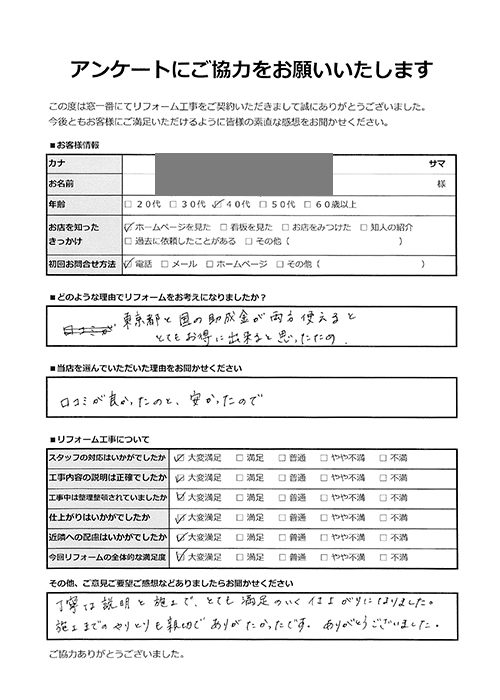 アンケートにご協力をお願いいたします
この度は窓一番にてリフォーム工事をご契約いただきまして誠にありがとうございました。
今後ともお客様にご満足いただけるように皆様の素直な感想をお聞かせください。
■お客様情報
カナ サマ
お名前 様
年齢 □ 20代 □ 30代 ☑ 40代 □ 50代 □ 60歳以上
お店を知った ☑ ホームページを見た □ 看板を見た □ お店をみつけた □ 知人の紹介
きっかけ □ 過去に依頼したことがある □ その他 ( )
初回お問合せ方法 ☑ 電話 □ メール □ ホームページ □ その他 ( )
■どのような理由でリフォームをお考えになりましたか？
東京都と国の助成金が両方使えると
とてもお得に出来ると思ったため.
■当店を選んでいただいた理由をお聞かせください
口コミが良かったのと、安かったので
■リフォーム工事について
スタッフの対応はいかがでしたか ☑ 大変満足 □ 満足 □ 普通 □ やや不満 □ 不満
工事内容の説明は正確でしたか ☑ 大変満足 □ 満足 □ 普通 □ やや不満 □ 不満
工事中は整理整頓されていましたか ☑ 大変満足 □ 満足 □ 普通 □ やや不満 □ 不満
仕上がりはいかがでしたか ☑ 大変満足 □ 満足 □ 普通 □ やや不満 □ 不満
近隣への配慮はいかがでしたか ☑ 大変満足 □ 満足 □ 普通 □ やや不満 □ 不満
今回リフォームの全体的な満足度 ☑ 大変満足 □ 満足 □ 普通 □ やや不満 □ 不満
その他、ご意見ご要望ご感想などありましたらお聞かせください
丁寧な説明と施工で、とても満足のいく仕上がりになりました。
施工までのやりとりも親切でありがたかったです. ありがとうございました.
ご協力ありがとうございました。